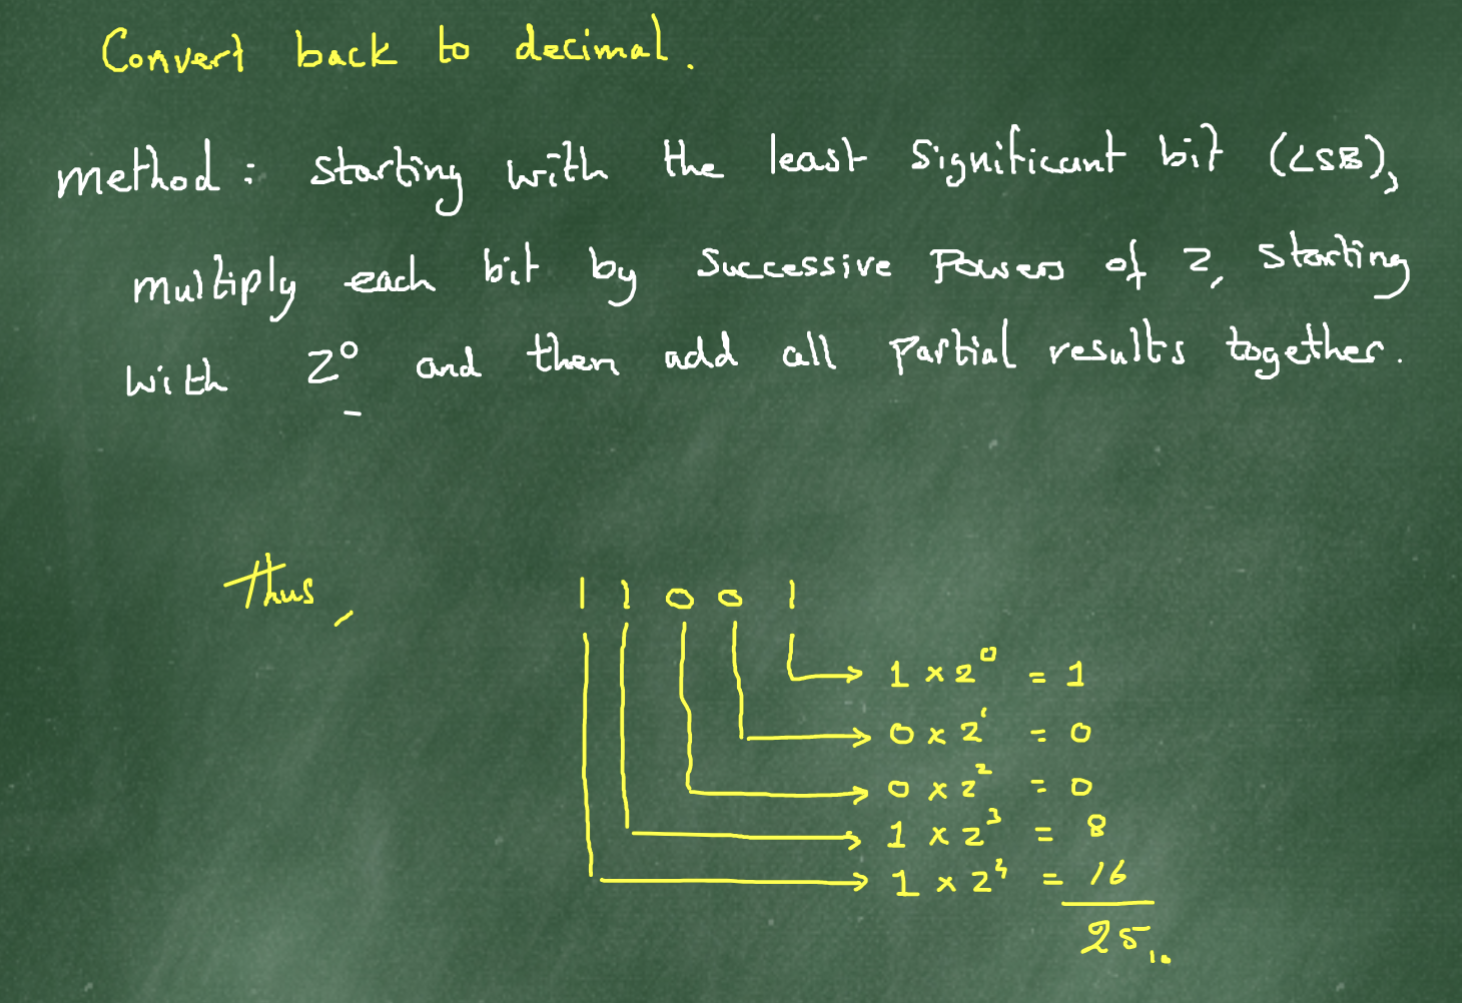 Convert back to decimal.
method : starting with the least significant bit (LSB),
multiply each bit by successive Powers of 2, starting
with 2⁰ and then add all partial results together.
Thus,
1 1 0 0 1
1 × 2⁰ = 1
0 × 2¹ = 0
0 × 2² = 0
1 × 2³ = 8
1 × 2⁴ = 16
25₁₀